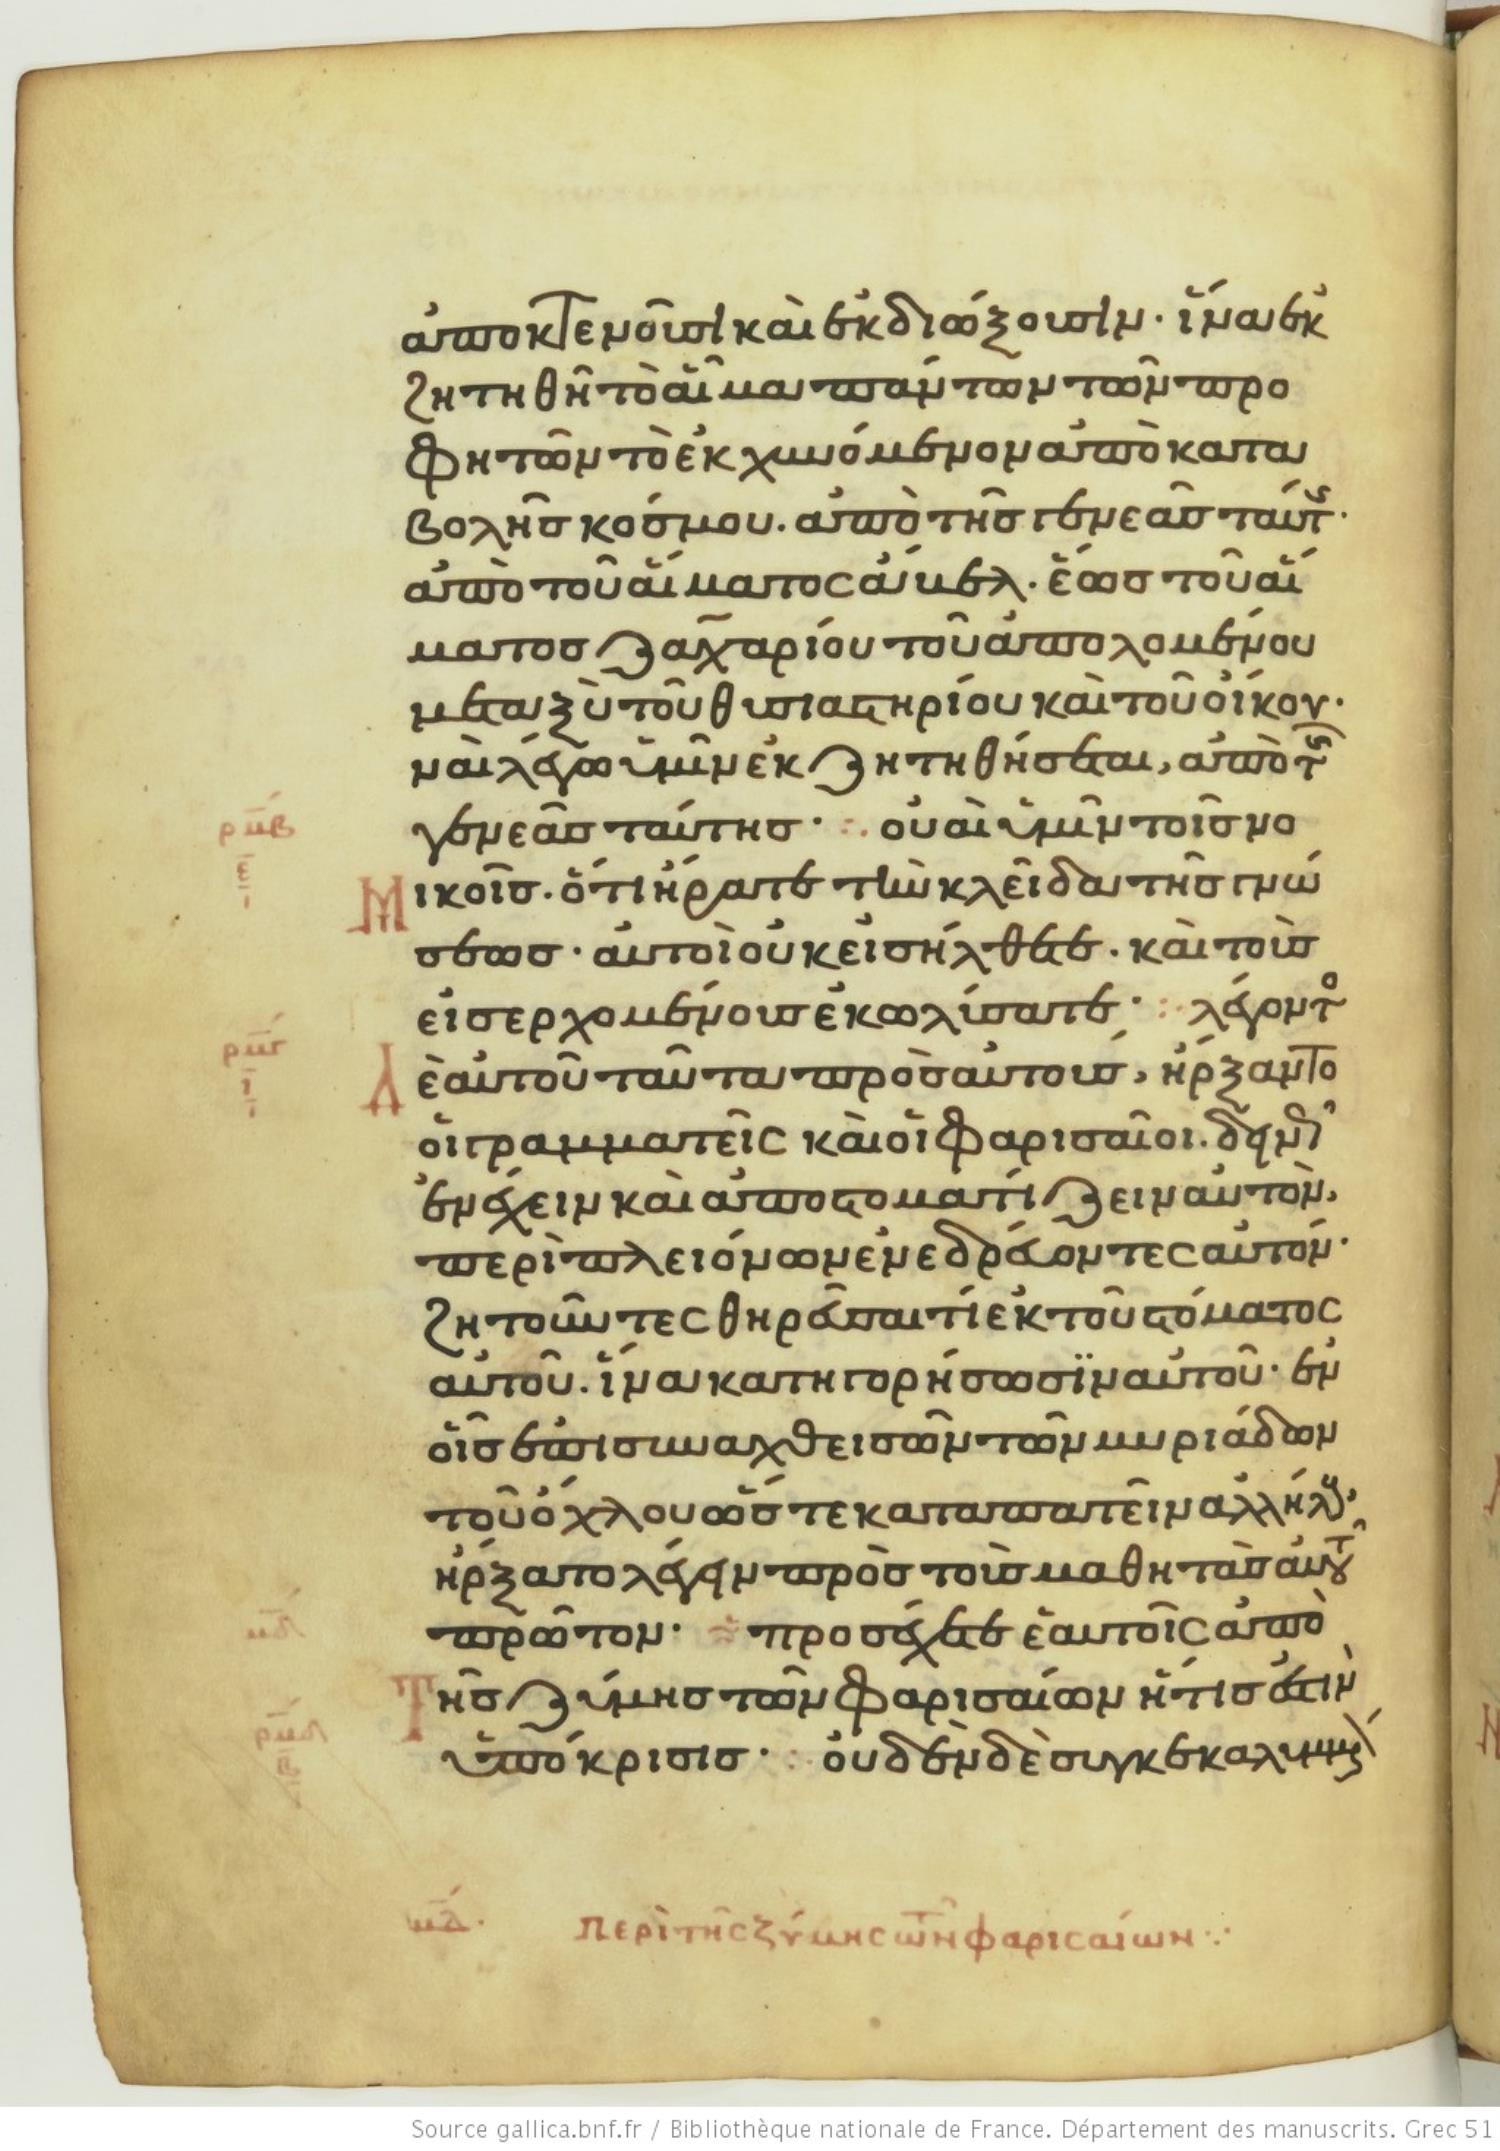 ἀποκτενοῦσι καὶ ἐκδιώξουσιν· ἵνα ἐκ
ζητηθῆ τὸ αἷμα πάντων τῶν προ
φητῶν τὸ ἐκχυνόμενον ἀπὸ κατα
βολῆς κόσμου. ἀπὸ τῆς γενεᾶς ταύτ·
ἀπὸ τοῦ αἵματος ἄβελ. ἕως τοῦ αἵ
ματος ζαχαρίου τοῦ ἀπολομένου
μεταξὺ τοῦ θυσιαστηρίου καὶ τοῦ οἴκου·
ναὶ λέγω ὑμῖν ἐκζητηθήσεται, ἀπὸ τ
ρμβ γενεᾶς ταύτης· οὐαὶ ὑμῖν τοῖς νο
ε
Μικοῖς. ὅτι ἤρατε τὴν κλεῖδα τῆς γνώ
σεως· αὐτοὶ οὐκ εἰσήλθετε. καὶ τοὺς
εἰσερχομένους ἐκωλύσατε· λέγοντο
ρμγ
ι
Δὲ αὐτοῦ ταῦτα πρὸς αὐτοὺς, ἤρξαντο
οἱ γραμματεῖς καὶ οἱ φαρισαῖοι. δεινῶ
ἐνέχειν καὶ ἀποστοματίζειν αὐτὸν,
περὶ πλειόνων ἐνεδρεύοντες αὐτόν·
ζητοῦντες θηρεῦσαί τι ἐκ τοῦ στόματος
αὐτοῦ. ἵνα κατηγορήσωσϊν αὐτοῦ· ἐν
οἷς ἐπισυναχθεισῶν τῶν μυριάδων
τοῦ ὄχλου ὥστε καταπατεῖν ἀλλήλ·
ἤρξατο λέγειν πρὸς τοὺς μαθητὰς αὐτοῦ
μδ πρῶτον· προσέχετε ἑαυτοῖς ἀπὸ
Τῆς ζύμης τῶν φαρισαίων ἥτις ἐστὶν
ρμδ ὑπόκρισις· οὐδὲν δὲ συγκεκαλυμμ
β
μδ· περὶ τῆς ζύμης τῶν φαρισαίων
Source gallica.bnf.fr / Bibliothèque nationale de France. Département des manuscrits. Grec 51